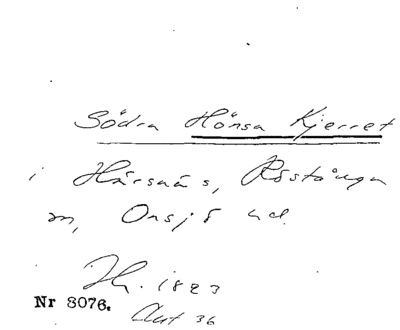 Södra Hönsa Kjerret
i Härsnäs, Röstånga
m, Onsjö hd.
Jh. 1823
Nr 8076.
Aut 36